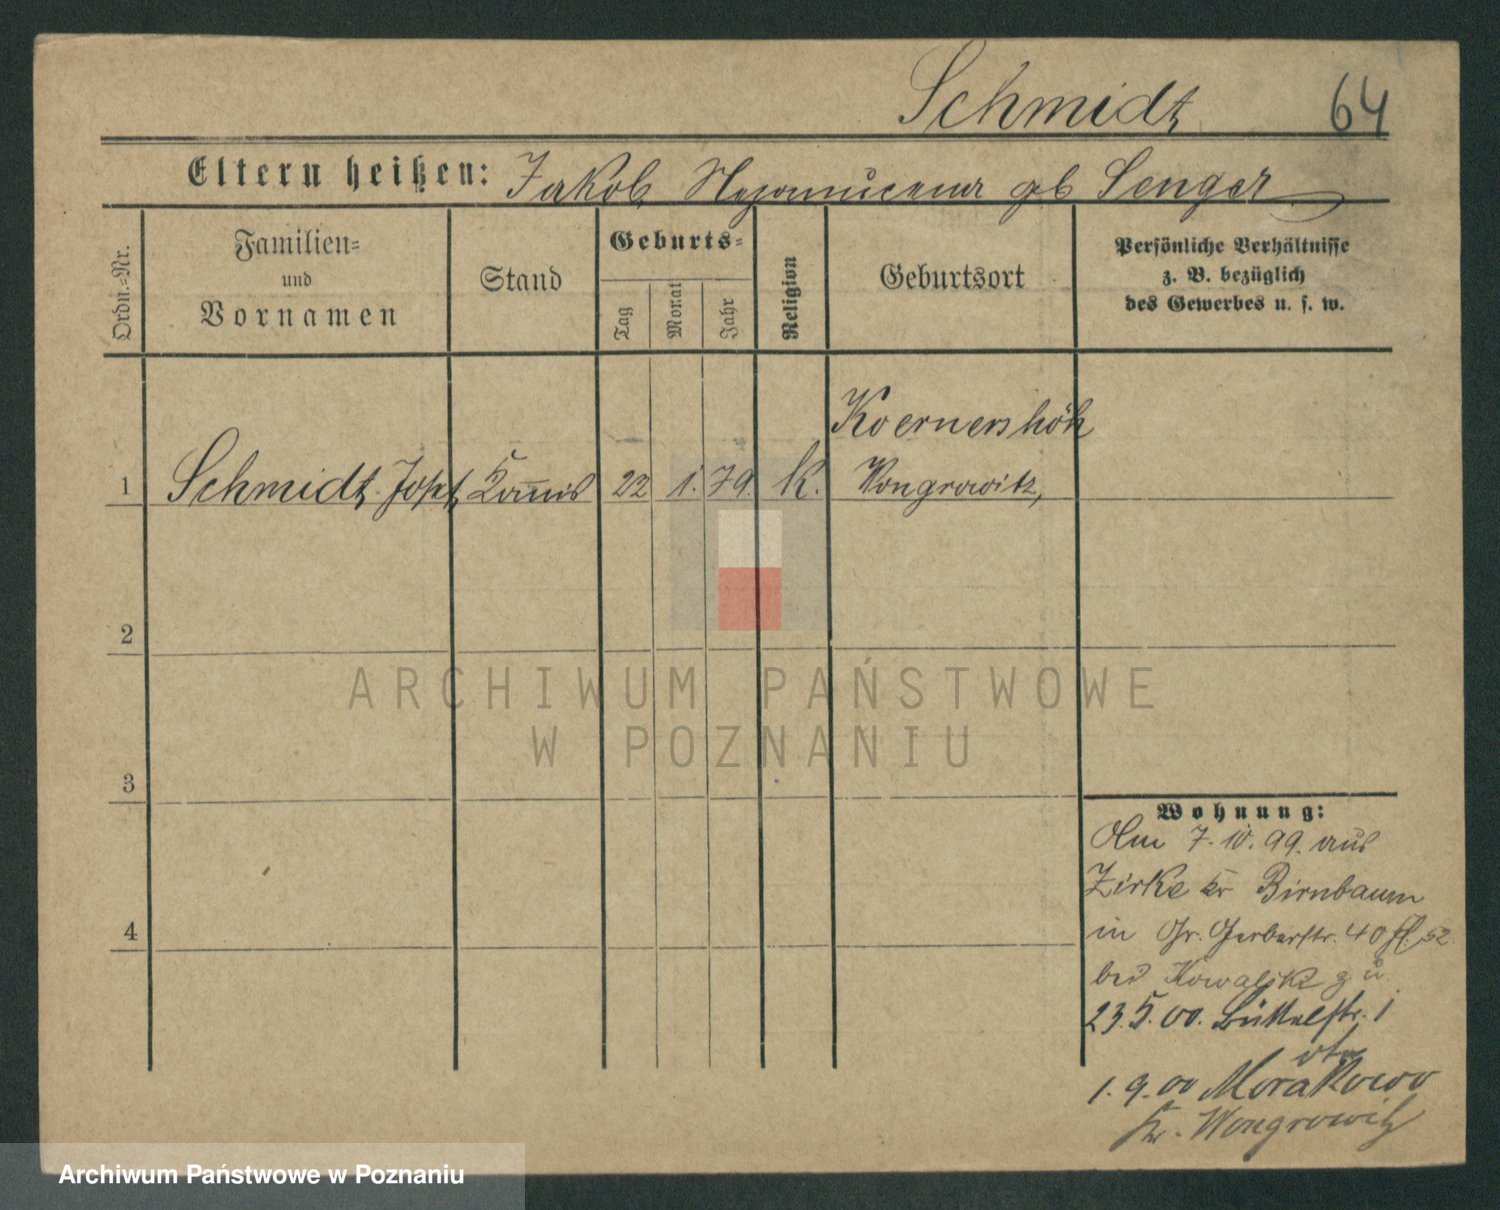 Schmidt 64
Eltern heißen: Jakob, Nepomucena gb Senger
Ordn.=Nr.
Familien=
und
Vornamen
Stand
Geburts=
Tag
Monat
Jahr
Religion
Geburtsort
Persönliche Verhältnisse
z. B. bezüglich
des Gewerbes u. s. w.
Koernershöh
1 Schmidt Josef, Commis 22 1. 79. K. Wongrowitz,
2
3
4
Wohnung:
Am 7. 10. 99. aus
Zirke Kr Birnbaum
in Gr. Gerberstr. 40 52
bei Kowalski zu
23.5.00. Büttelstr. 1
1.9.00 Morakowo
Kr. Wongrowitz
ARCHIWUM PAŃSTWOWE
W POZNANIU
Archiwum Państwowe w Poznaniu